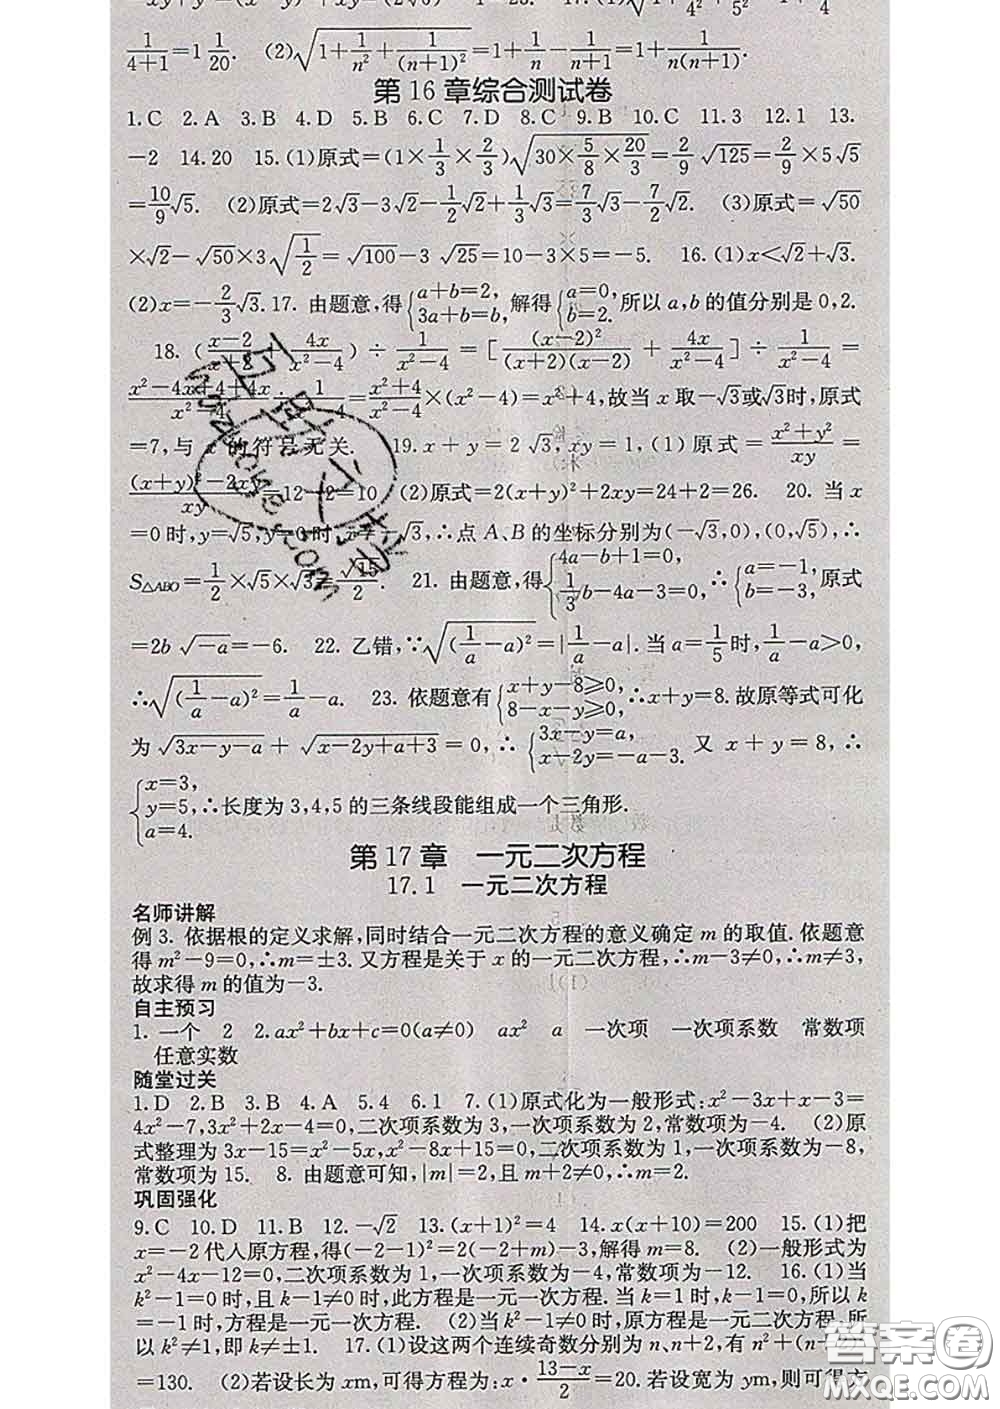 1/(4+1)=1 1/20. (2)√(1+1/n²+1/(n+1)²)=1+1/n−1/(n+1)=1+1/(n(n+1)).
第16章综合测试卷
1.C 2.A 3.B 4.D 5.B 6.C 7.D 8.C 9.B 10.C 11.3 12.1 13.
−2 14.20 15.(1)原式=(1×1/3×2/3)√(30×5/8×20/3)=2/9√125=2/9×5√5
=10/9√5. (2)原式=2√3−3√2−1/2√2+1/3√3=7/3√3−7/2√2. (3)原式=√50
×√2−√50×3√(1/2)=√100−3√25=10−3×5=−5. 16.(1)x<√2+√3.
(2)x=−2/3√3. 17. 由题意,得{a+b=2, 3a+b=b, 解得{a=0, b=2. 所以a,b的值分别是0,2.
18. ((x−2)/(x+2)+4x/(x²−4))÷1/(x²−4)=[(x−2)²/((x+2)(x−2))+4x/(x²−4)]÷1/(x²−4)=
(x²−4x+4+4x)/(x²−4)÷1/(x²−4)=(x²+4)/(x²−4)×(x²−4)=x²+4,故当x取−√3或√3时,原式
=7,与x的符号无关. 19. x+y=2√3,xy=1,(1)原式=(x²+y²)/xy=
((x+y)²−2xy)/xy=12−2=10 (2)原式=2(x+y)²+2xy=24+2=26. 20. 当x
=0时,y=√5,y=0时,x=−√3,∴点A、B的坐标分别为(−√3,0),(0,√5),∴
S△ABO=1/2×√5×√3=√15/2. 21. 由题意,得{4a−b+1=0, 1/3b−4a−3=0, ∴{a=−1, b=−3, 原式
=2b√−a=−6. 22. 乙错,∵√((1/a−a)²)=|1/a−a|. 当a=1/5时,1/a−a>0,
∴√((1/a−a)²)=1/a−a. 23. 依题意有{x+y−8≥0, 8−x−y≥0, ∴x+y=8. 故原等式可化
为√(3x−y−a)+√(x−2y+a+3)=0,∴{3x−y=a, x−2y=−a−3. 又x+y=8,∴
{x=3, y=5, a=4. ∴长度为3,4,5的三条线段能组成一个三角形.
第17章 一元二次方程
17.1 一元二次方程
名师讲解
例3. 依据根的定义求解,同时结合一元二次方程的意义确定m的取值. 依题意
得m²−9=0,∴m=±3. 又方程是关于x的一元二次方程,∴m−3≠0,∴m≠3,
故求得m的值为−3.
自主预习
1. 一个 2 2. ax²+bx+c=0(a≠0) ax² a 一次项 一次项系数 常数项
任意实数
随堂过关
1.D 2.B 3.B 4.A 5.4 6.1 7.(1)原式化为一般形式:x²−3x+x−3=
4x²−7,3x²+2x−4=0,二次项系数为3,一次项系数为2,常数项为−4. (2)原
式整理为3x−15=x²−5x,x²−8x+15=0,二次项系数为1,一次项系数为−8,
常数项为15. 8. 由题意可知,|m|=2,且m+2≠0,∴m=2.
巩固强化
9.C 10.D 11.B 12.−√2 13.(x+1)²=4 14.x(x+10)=200 15.(1)把
x=−2代人原方程,得(−2−1)²=2(−2+m)−3,解得m=8. (2)一般形式为
x²−4x−12=0,二次项系数为1,一次项系数为−4,常数项为−12. 16.(1)当
k²−1=0时,且k−1≠0时,此方程是一元一次方程. 当k=1时,k−1=0,所以k≠1
时,方程是一元一次方程. (2)当k²−1≠0时,原方程是一元二次方程,所
以k²≠1,即k≠±1. 17.(1)设这两个连续奇数分别为n、n+2,有n²+(n+2)²
=130. (2)若设长为xm,可得方程为:x·(13−x)/2=20. 若设宽为ym,则可得方
答案圈
MXQE.COM